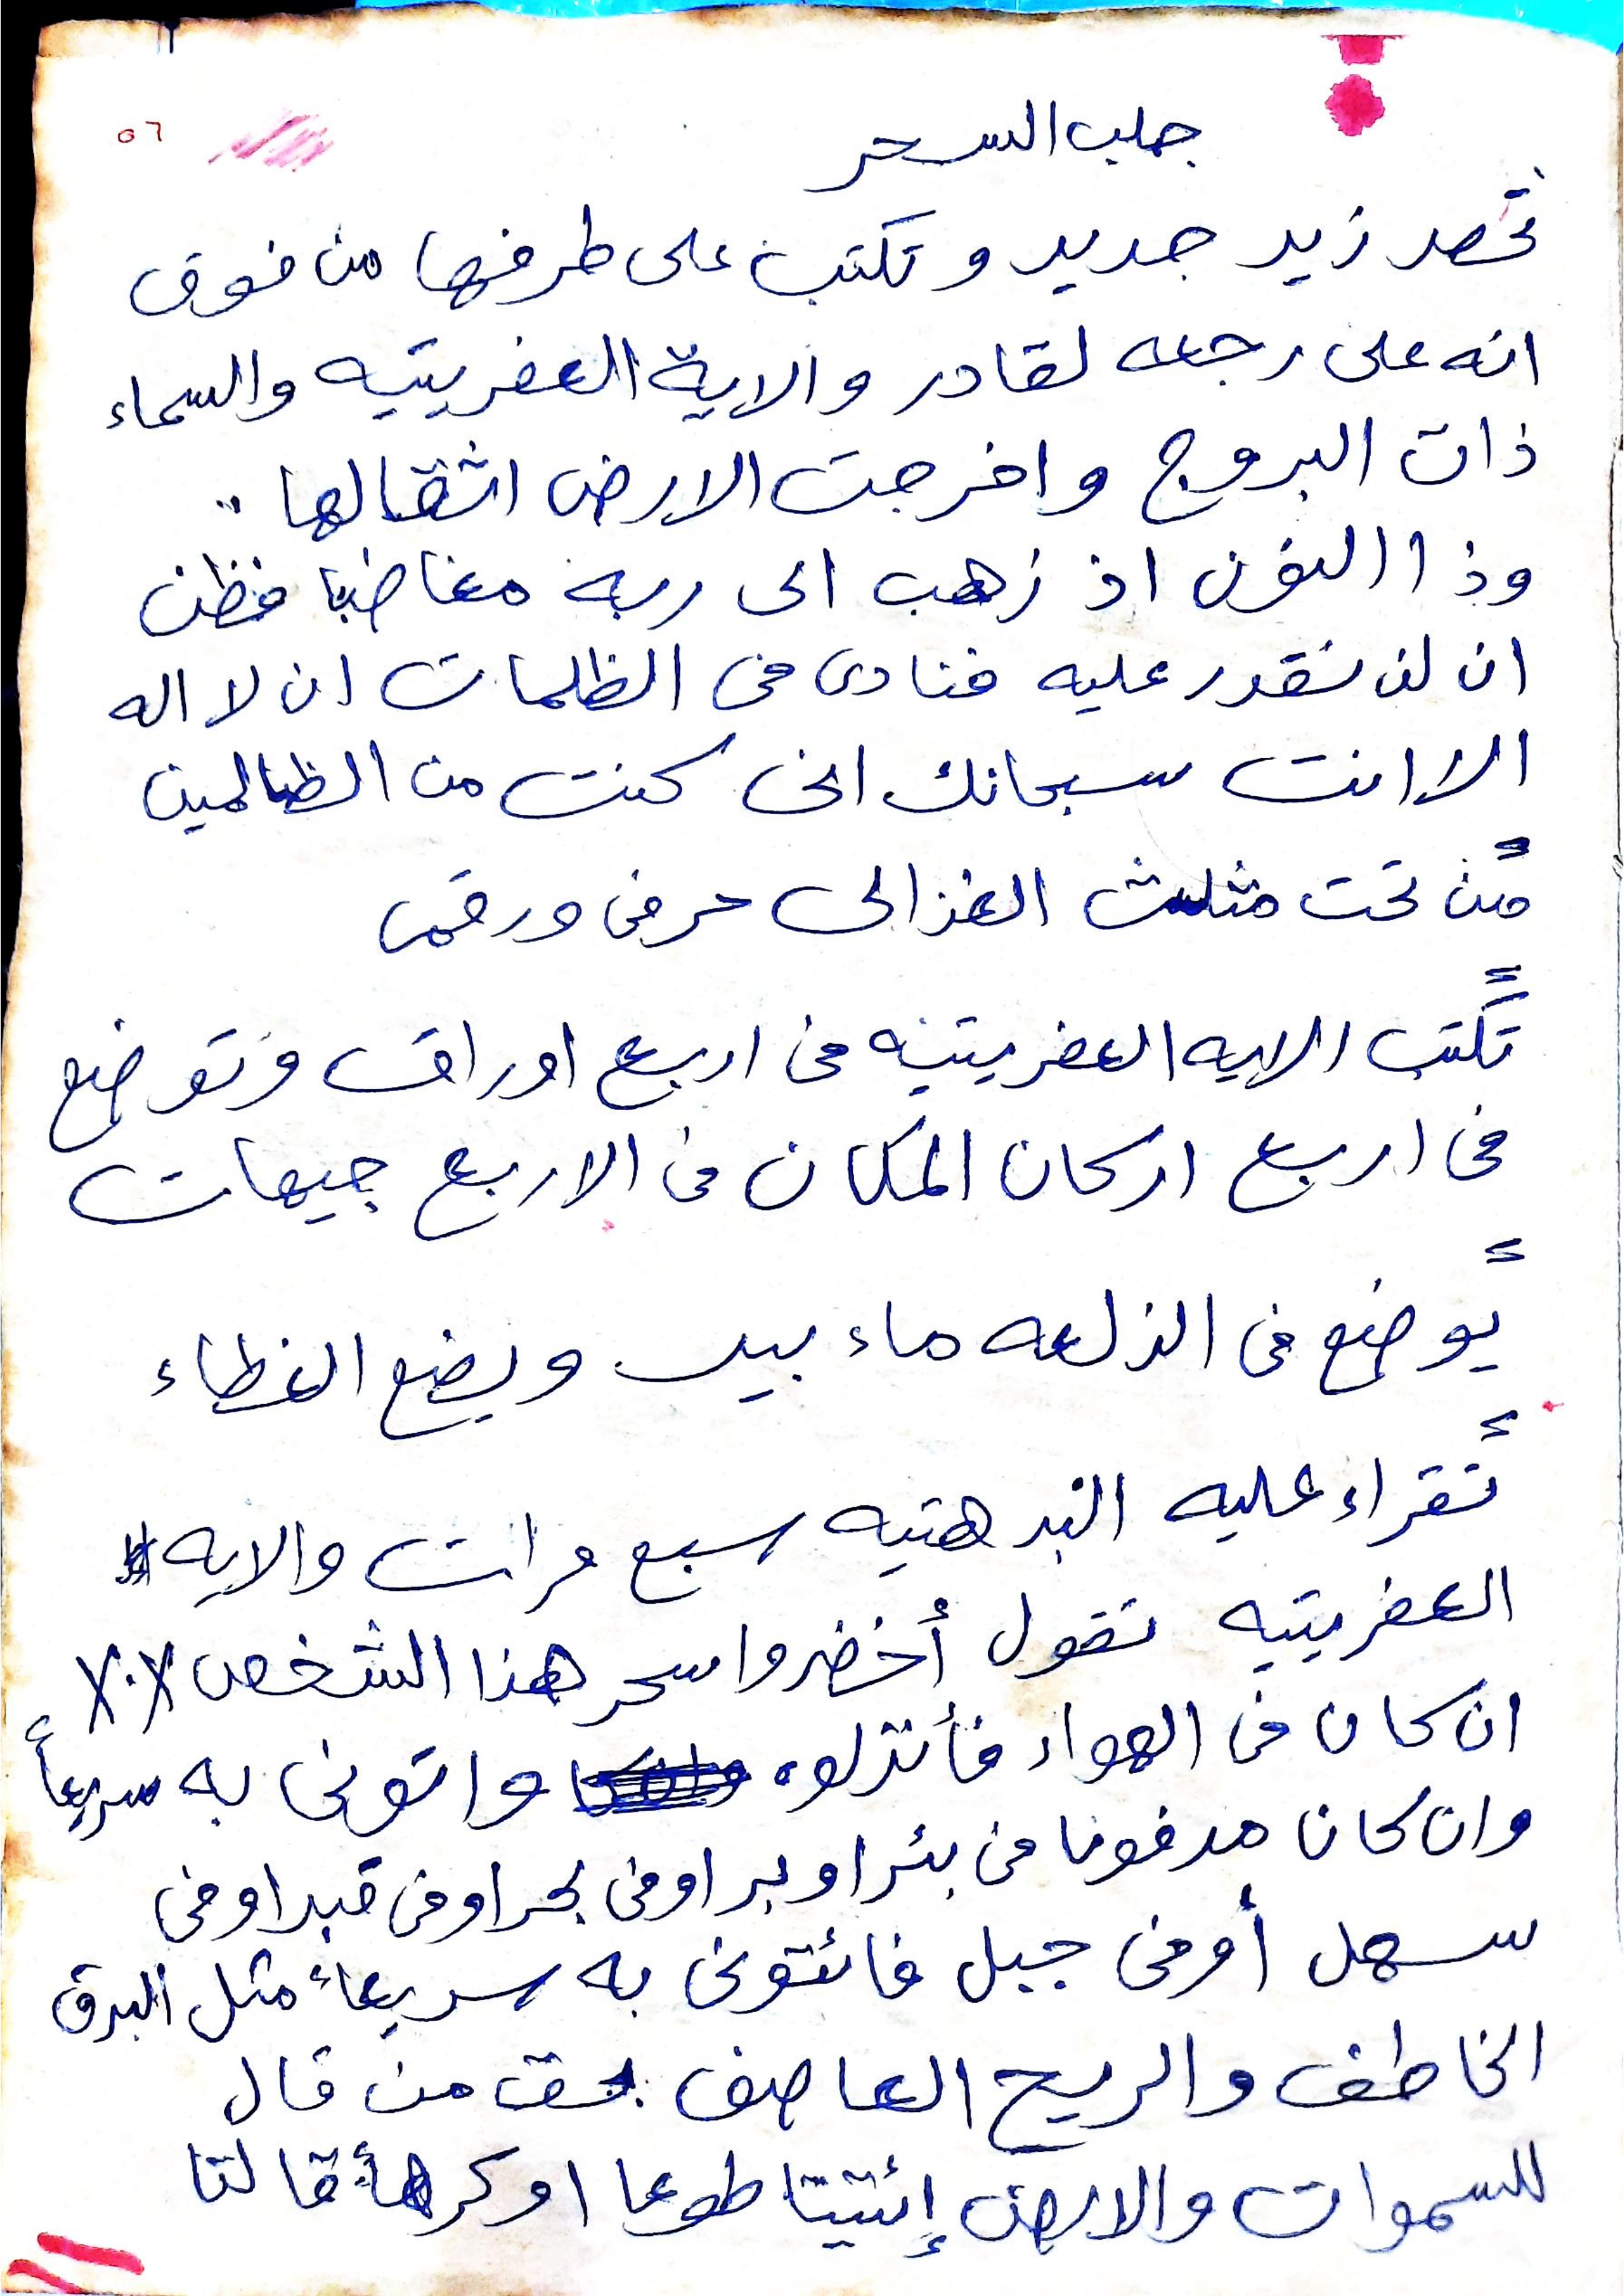 ٥٦
جلب السحر
تحصر زير جديد وتكتب على طرفها من فوق
انه على رجعه لقادر والاية العفريتيه والسماء
ذات البروج واخرجت الارض اثقالها ..
وذا االنون اذ زهب الى ربه مغاضبا فظن
ان لن نقدر عليه فنادى فى الظلمات ان لا اله
الا انت سبحانك انى كنت من الظالمين
من تحت مثلث الغزالى حرفى ورقمى
تكتب الايه العفريتيه فى اربع اوراق وتوضع
فى اربع اركان المكان فى الاربع جيهات
يوضع فى الزلعه ماء بير ويضع الغطاء
تقراء عليه البرهتيه سبع مرات والايه
العفريتيه تقول أخضروا سحر هذا الشخص
ان كان فى الهواء فأنزلوه واتونى به سريعاً
وان كان مدفونا فى بئر او بر اوفى بحر اوفى قبر اوفى
سهل أوفى جبل فائتونى به سريعاً مثل البرق
الخاطف والريح العاصف بحق من قال
للسموات والارض إئتيتا طوعا او كرهاً قالتا